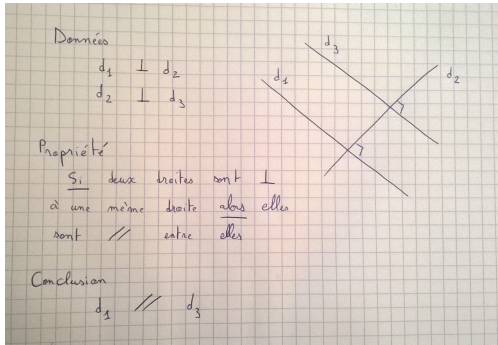 Données
d₁ ⊥ d₂
d₂ ⊥ d₃
d₃
d₁
d₂
Propriété
Si deux droites sont ⊥
à une même droite alors elles
sont // entre elles
Conclusion
d₁ // d₃